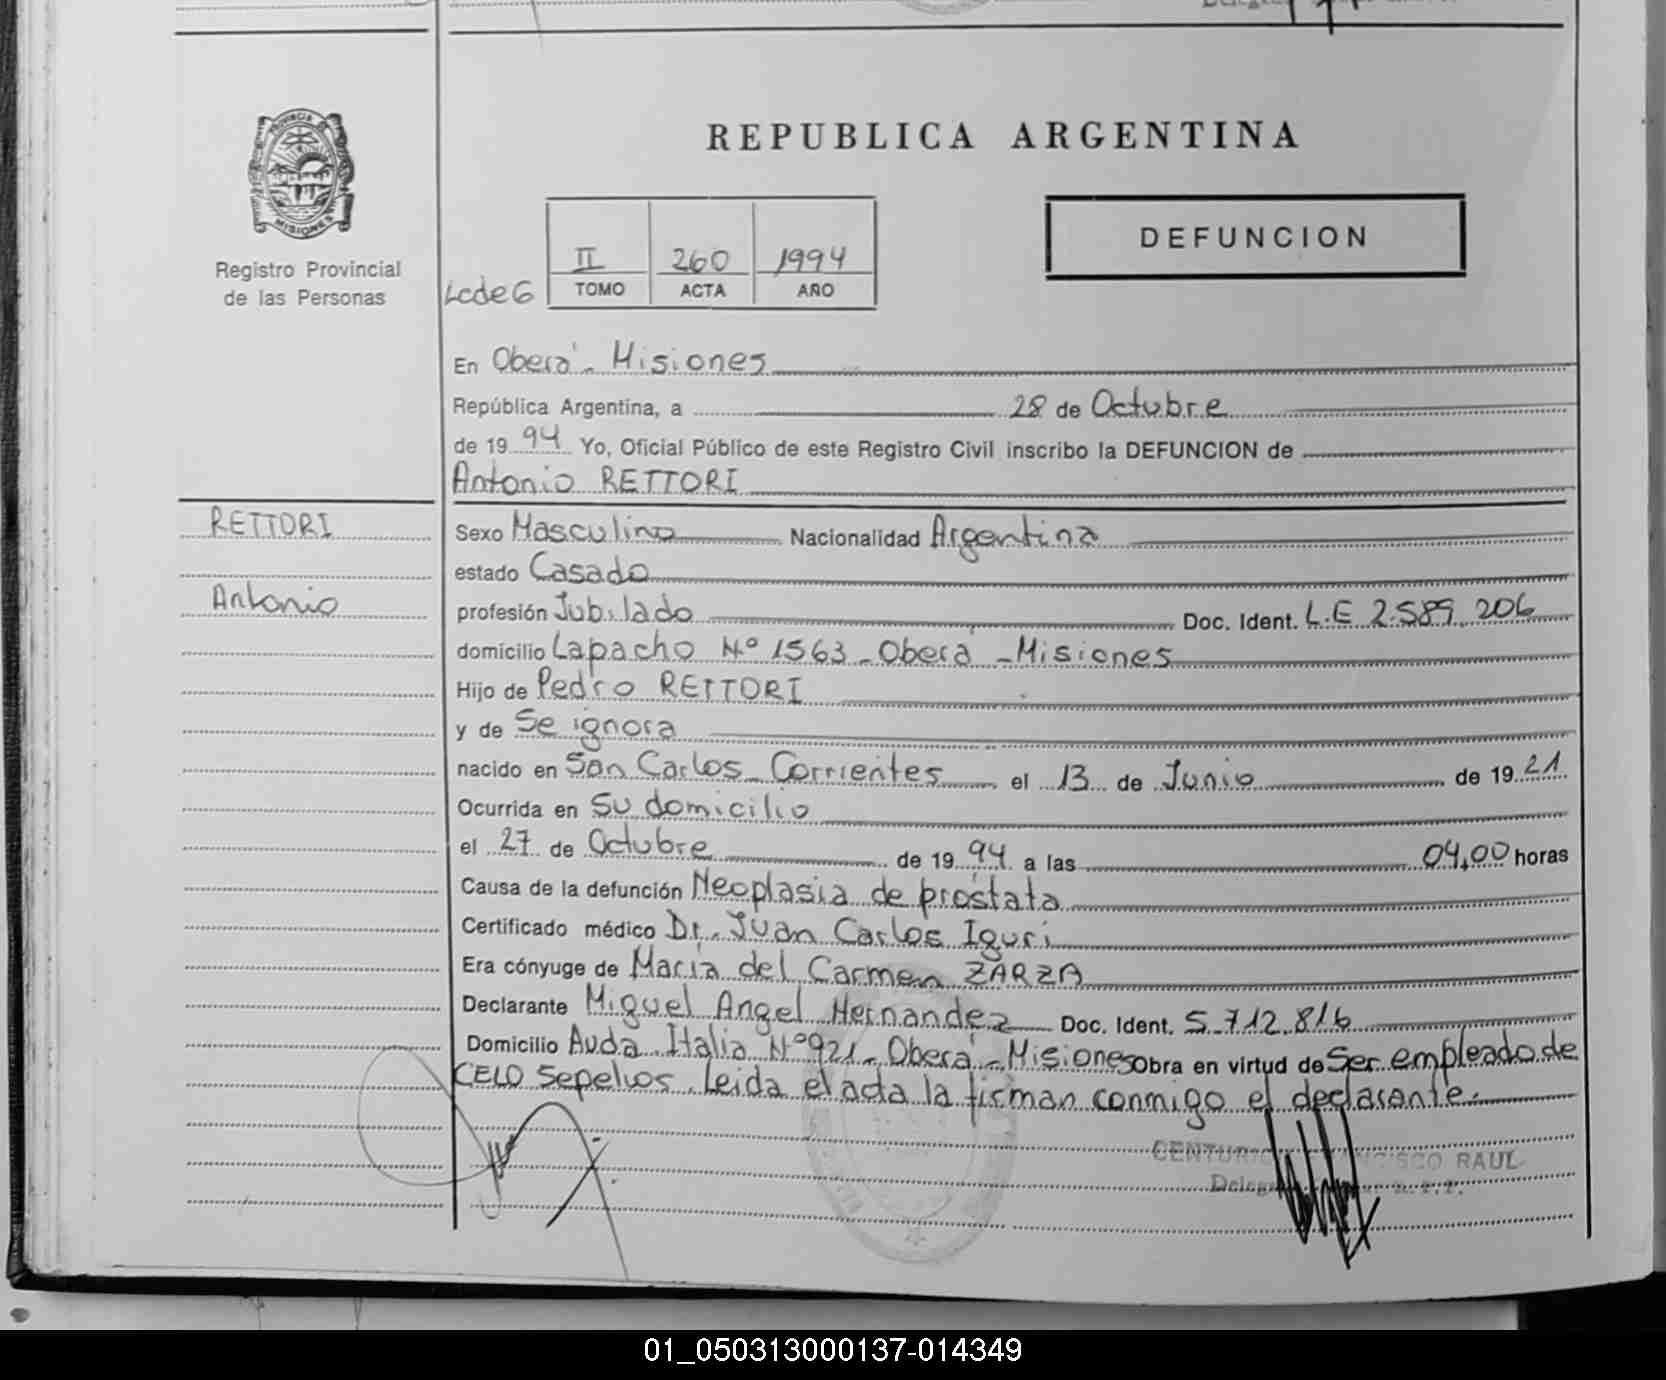 PROVINCIA DE
MISIONES
Registro Provincial
de las Personas
REPUBLICA ARGENTINA
DEFUNCION
II 260 1994
TOMO ACTA AÑO
En Oberá - Misiones
República Argentina, a 28 de Octubre
de 19 94 Yo, Oficial Público de este Registro Civil inscribo la DEFUNCION de
Antonio RETTORI
RETTORI
Antonio
Sexo Masculino Nacionalidad Argentina
estado Casado
profesión Jubilado Doc. Ident. L.E 2.589.206
domicilio Lapacho Nº 1563 - Oberá - Misiones
Hijo de Pedro RETTORI
y de Se ignora
nacido en San Carlos - Corrientes el 13 de Junio de 19 21
Ocurrida en Su domicilio
el 27 de Octubre de 19 94 a las 04,00 horas
Causa de la defunción Neoplasia de próstata
Certificado médico Dr. Juan Carlos Iguri
Era cónyuge de María del Carmen ZARZA
Declarante Miguel Angel Hernandez Doc. Ident. 5.712.816
Domicilio Avda. Italia Nº 921 - Oberá - Misiones Obra en virtud de Ser empleado de
CELO Sepelios. Leida el acta la firman conmigo el declarante.
RAUL
01_050313000137-014349